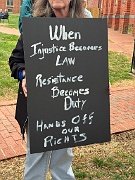 When
Injustice Becomes
LAW
Resistance
Becomes
Duty
Hands Off
our
Rights